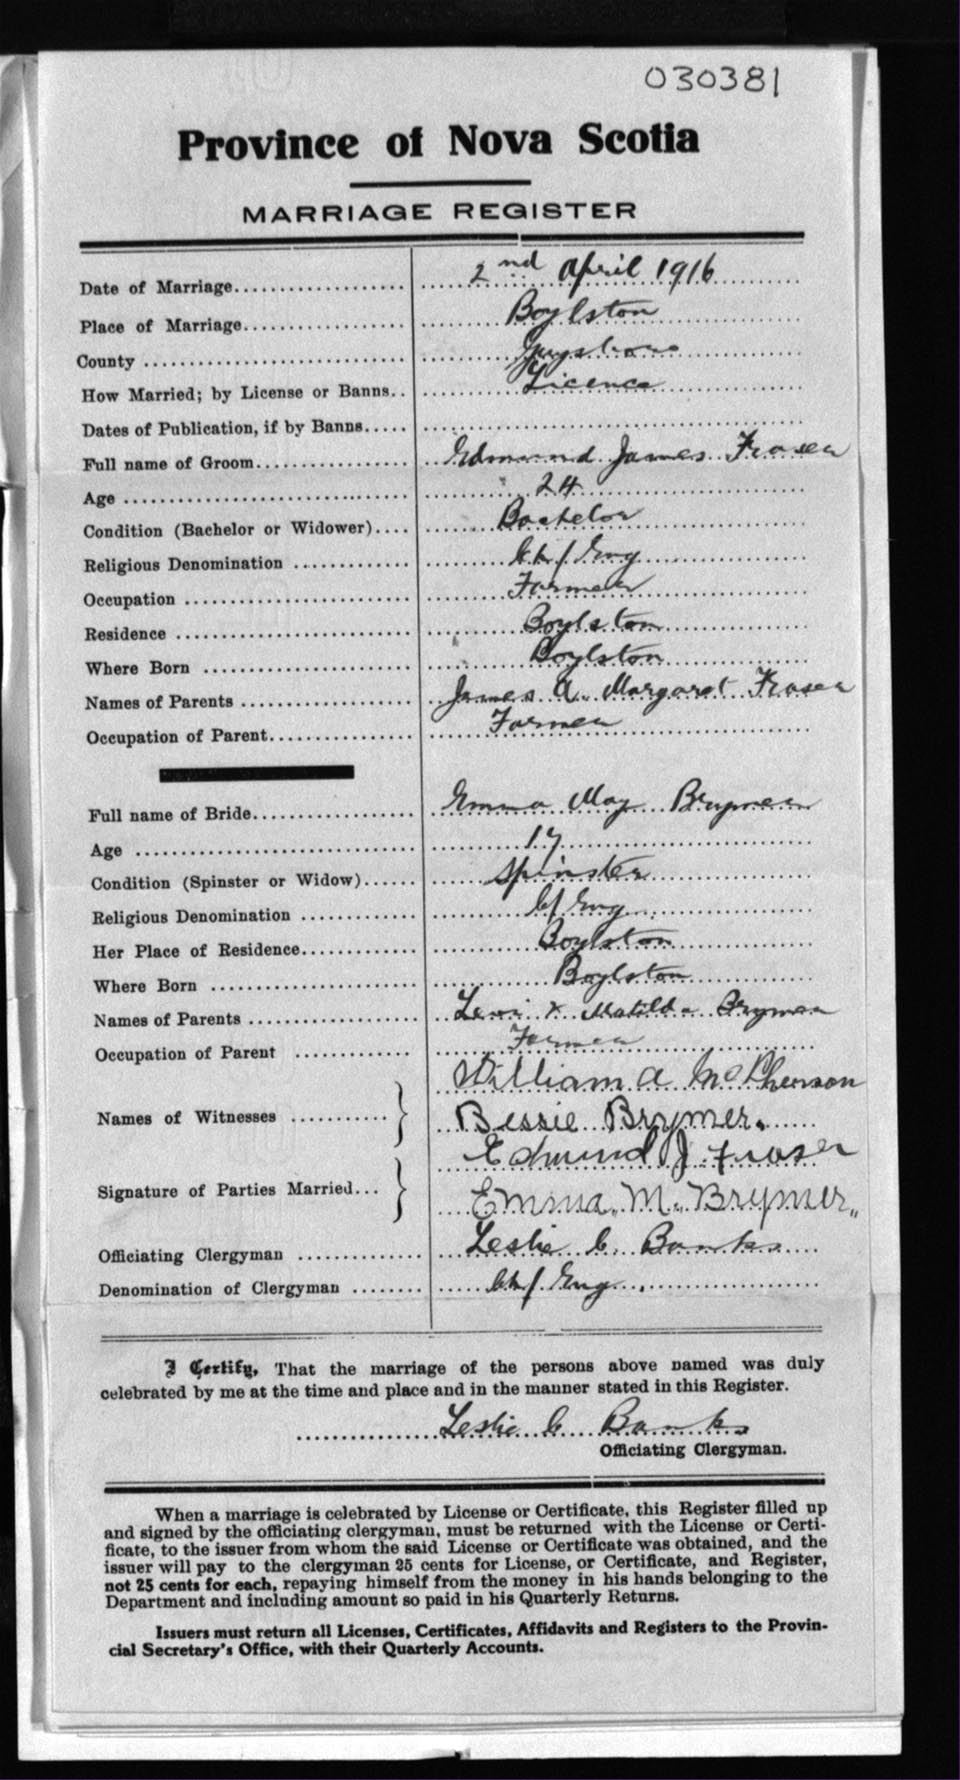 030381
Province of Nova Scotia
MARRIAGE REGISTER
Date of Marriage.................. 2nd April 1916
Place of Marriage................. Boylston
County ........................... Guysboro
How Married; by License or Banns.. Licence
Dates of Publication, if by Banns.....
Full name of Groom................ Edmund James Fraser
Age .............................. 24
Condition (Bachelor or Widower).... Bachelor
Religious Denomination ............ Ch/ Eng
Occupation ....................... Farmer
Residence ........................ Boylston
Where Born ....................... Boylston
Names of Parents ................. James A. Margaret Fraser
Occupation of Parent.............. Farmer
Full name of Bride................ Emma May Brymer
Age .............................. 17
Condition (Spinster or Widow)...... Spinster
Religious Denomination ............ C/ Eng
Her Place of Residence............ Boylston
Where Born ....................... Boylston
Names of Parents ................. Levi & Matilda Brymer
Occupation of Parent ............ Farmer
William A McPherson
Names of Witnesses ........... } Bessie Brymer.
Edmund J Fraser
Signature of Parties Married... } Emma. M. Brymer.
Officiating Clergyman ............. Leslie C. Banks
Denomination of Clergyman ........ Ch/ Eng.
I Certify, That the marriage of the persons above named was duly
celebrated by me at the time and place and in the manner stated in this Register.
Leslie C Banks
Officiating Clergyman.
When a marriage is celebrated by License or Certificate, this Register filled up
and signed by the officiating clergyman, must be returned with the License or Certi-
ficate, to the issuer from whom the said License or Certificate was obtained, and the
issuer will pay to the clergyman 25 cents for License, or Certificate, and Register,
not 25 cents for each, repaying himself from the money in his hands belonging to the
Department and including amount so paid in his Quarterly Returns.
Issuers must return all Licenses, Certificates, Affidavits and Registers to the Provin-
cial Secretary's Office, with their Quarterly Accounts.